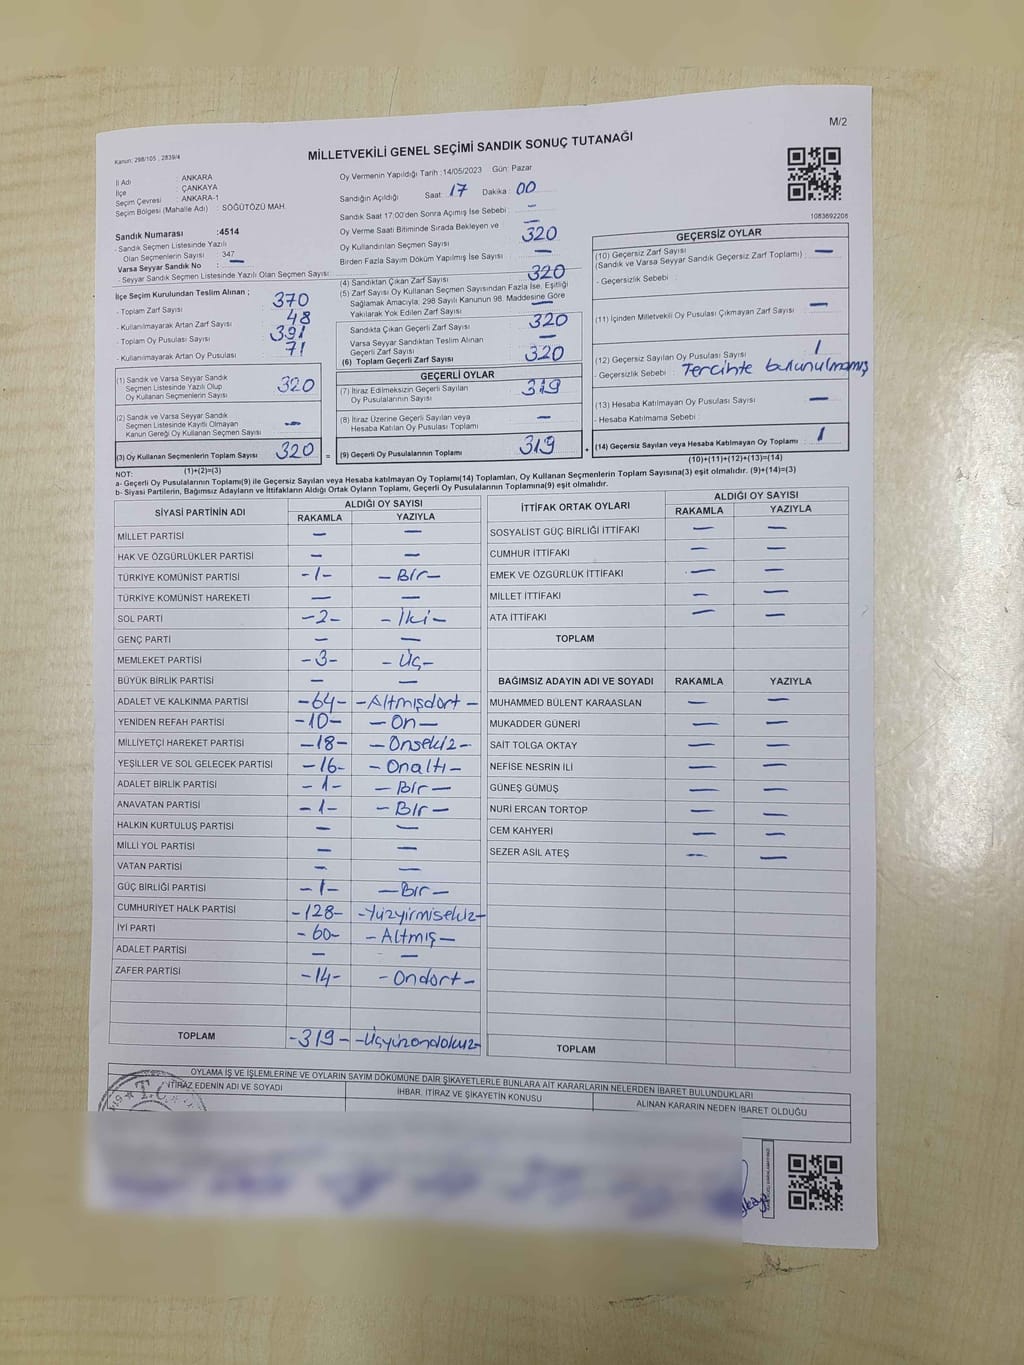 M/2
Kanun: 298/105 , 2839/4
MİLLETVEKİLİ GENEL SEÇİMİ SANDIK SONUÇ TUTANAĞI
1083692206
İl Adı : ANKARA
İlçe : ÇANKAYA
Seçim Çevresi : ANKARA-1
Seçim Bölgesi (Mahalle Adı) : SÖĞÜTÖZÜ MAH.
Sandık Numarası :4514
- Sandık Seçmen Listesinde Yazılı
Olan Seçmenlerin Sayısı 347
Varsa Seyyar Sandık No : —
- Seyyar Sandık Seçmen Listesinde Yazılı Olan Seçmen Sayısı:
İlçe Seçim Kurulundan Teslim Alınan ;
- Toplam Zarf Sayısı : 370
- Kullanılmayarak Artan Zarf Sayısı : 48
- Toplam Oy Pusulası : 391
- Kullanılmayarak Artan Oy Pusulası : 71
(1) Sandık ve Varsa Seyyar Sandık
Seçmen Listesinde Yazılı Olup
Oy Kullanan Seçmenlerin Sayısı 320
(2) Sandık ve Varsa Seyyar Sandık
Seçmen Listesinde Kayıtlı Olmayan
Kanun Gereği Oy Kullanan Seçmen Sayısı —
(3) Oy Kullanan Seçmenlerin Toplam Sayısı 320 =
(1)+(2)=(3)
Oy Vermenin Yapıldığı Tarih :14/05/2023 Gün: Pazar
Sandığın Açıldığı Saat: 17 Dakika: 00
Sandık Saat 17:00'den Sonra Açımış İse Sebebi : —
Oy Verme Saati Bitiminde Sırada Bekleyen ve —
Oy Kullandırılan Seçmen Sayısı 320
Birden Fazla Sayım Döküm Yapılmış İse Sayısı —
(4) Sandıktan Çıkan Zarf Sayısı 320
(5) Zarf Sayısı Oy Kullanan Seçmen Sayısından Fazla İse, Eşitliği
Sağlamak Amacıyla, 298 Sayılı Kanunun 98. Maddesine Göre
Yakılarak Yok Edilen Zarf Sayısı —
Sandıkta Çıkan Geçerli Zarf Sayısı 320
Varsa Seyyar Sandıktan Teslim Alınan
Geçerli Zarf Sayısı —
(6) Toplam Geçerli Zarf Sayısı 320
GEÇERLİ OYLAR
(7) İtiraz Edilmeksizin Geçerli Sayılan
Oy Pusulalarının Sayısı 319
(8) İtiraz Üzerine Geçerli Sayılan veya
Hesaba Katılan Oy Pusulası Toplamı —
(9) Geçerli Oy Pusulalarının Toplamı 319
GEÇERSİZ OYLAR
(10) Geçersiz Zarf Sayısı —
(Sandık ve Varsa Seyyar Sandık Geçersiz Zarf Toplamı)
- Geçersizlik Sebebi :
(11) İçinden Milletvekili Oy Pusulası Çıkmayan Zarf Sayısı —
(12) Geçersiz Sayılan Oy Pusulası Sayısı 1
- Geçersizlik Sebebi : Tercihte bulunulmamış
(13) Hesaba Katılmayan Oy Pusulası Sayısı —
- Hesaba Katılmama Sebebi :
(14) Geçersiz Sayılan veya Hesaba Katılmayan Oy Toplamı 1
(10)+(11)+(12)+(13)=(14)
NOT:
a- Geçerli Oy Pusulalarının Toplamı(9) ile Geçersiz Sayılan veya Hesaba katılmayan Oy Toplamı(14) Toplamları, Oy Kullanan Seçmenlerin Toplam Sayısına(3) eşit olmalıdır. (9)+(14)=(3)
b- Siyasi Partilerin, Bağımsız Adayların ve İttifakların Aldığı Ortak Oyların Toplamı, Geçerli Oy Pusulalarının Toplamına(9) eşit olmalıdır.
SİYASİ PARTİNİN ADI ALDIĞI OY SAYISI
RAKAMLA YAZIYLA
MİLLET PARTİSİ — —
HAK VE ÖZGÜRLÜKLER PARTİSİ — —
TÜRKİYE KOMÜNİST PARTİSİ -1- -Bir-
TÜRKİYE KOMÜNİST HAREKETİ — —
SOL PARTİ -2- -İki-
GENÇ PARTİ — —
MEMLEKET PARTİSİ -3- -Üç-
BÜYÜK BİRLİK PARTİSİ — —
ADALET VE KALKINMA PARTİSİ -64- -Altmışdort-
YENİDEN REFAH PARTİSİ -10- -On-
MİLLİYETÇİ HAREKET PARTİSİ -18- -Onsekiz-
YEŞİLLER VE SOL GELECEK PARTİSİ -16- -Onaltı-
ADALET BİRLİK PARTİSİ -1- -Bir-
ANAVATAN PARTİSİ -1- -Bir-
HALKIN KURTULUŞ PARTİSİ — —
MİLLİ YOL PARTİSİ — —
VATAN PARTİSİ — —
GÜÇ BİRLİĞİ PARTİSİ -1- -Bir-
CUMHURİYET HALK PARTİSİ -128- -Yüzyirmisekiz-
İYİ PARTİ -60- -Altmış-
ADALET PARTİSİ — —
ZAFER PARTİSİ -14- -Ondort-
TOPLAM -319- -Üçyüzondokuz-
İTTİFAK ORTAK OYLARI ALDIĞI OY SAYISI
RAKAMLA YAZIYLA
SOSYALİST GÜÇ BİRLİĞİ İTTİFAKI — —
CUMHUR İTTİFAKI — —
EMEK VE ÖZGÜRLÜK İTTİFAKI — —
MİLLET İTTİFAKI — —
ATA İTTİFAKI — —
TOPLAM
BAĞIMSIZ ADAYIN ADI VE SOYADI RAKAMLA YAZIYLA
MUHAMMED BÜLENT KARAASLAN — —
MUKADDER GÜNERİ — —
SAİT TOLGA OKTAY — —
NEFİSE NESRİN İLİ — —
GÜNEŞ GÜMÜŞ — —
NURİ ERCAN TORTOP — —
CEM KAHYERİ — —
SEZER ASİL ATEŞ — —
TOPLAM
OYLAMA İŞ VE İŞLEMLERİNE VE OYLARIN SAYIM DÖKÜMÜNE DAİR ŞİKAYETLERLE BUNLARA AİT KARARLARIN NELERDEN İBARET BULUNDUKLARI
İTİRAZ EDENİN ADI VE SOYADI İHBAR, İTİRAZ VE ŞİKAYETİN KONUSU ALINAN KARARIN NEDEN İBARET OLDUĞU
T.C.